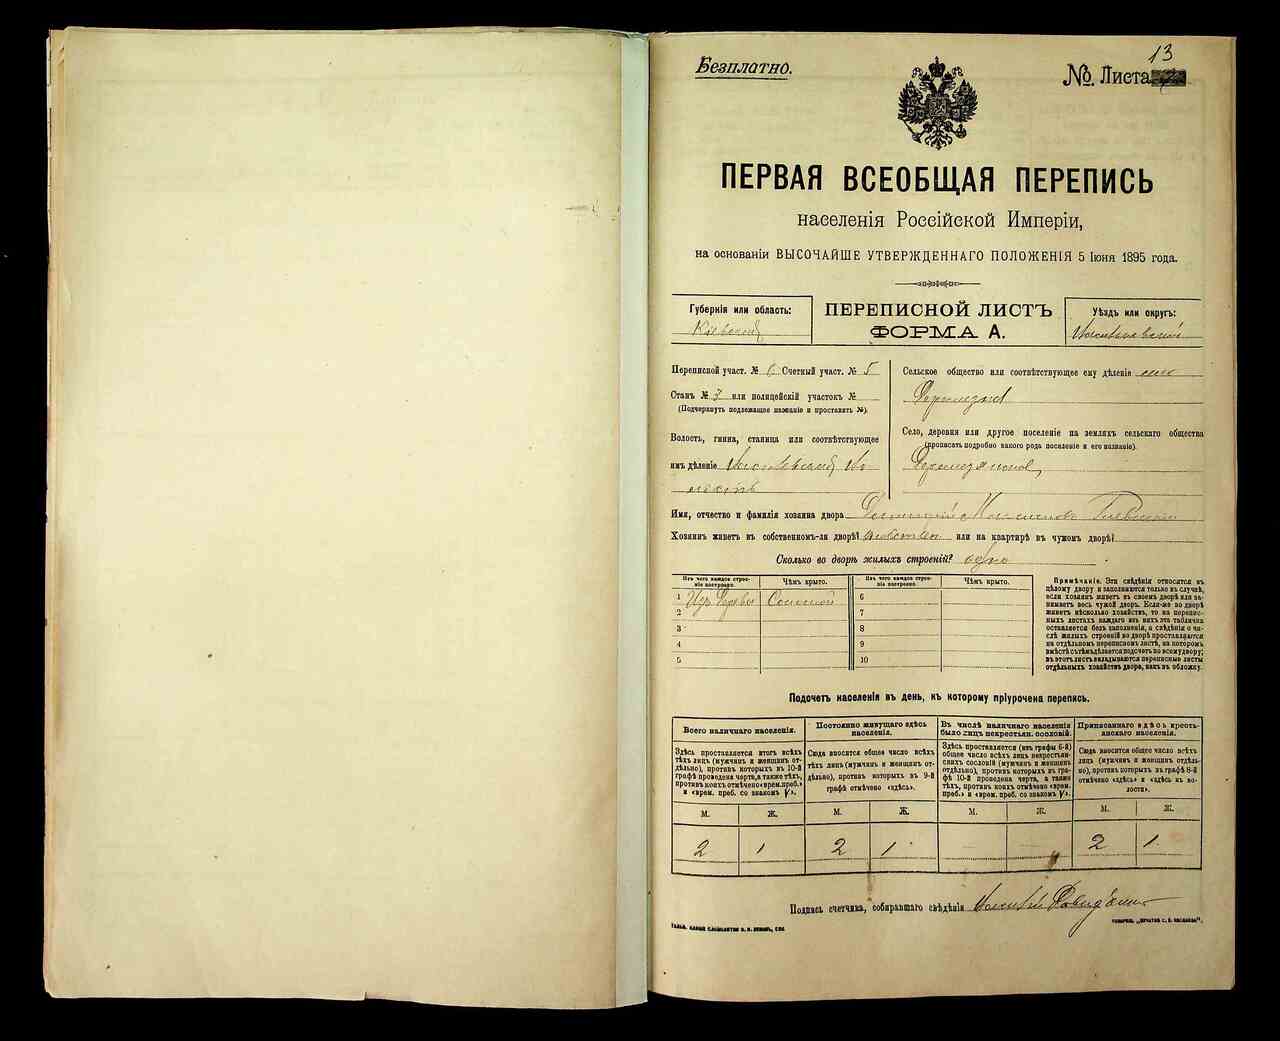 Безплатно.
13
№ Листа
ПЕРВАЯ ВСЕОБЩАЯ ПЕРЕПИСЬ
населенія Россійской Имперіи,
на основаніи ВЫСОЧАЙШЕ УТВЕРЖДЕННАГО ПОЛОЖЕНІЯ 5 Іюня 1895 года.
Губернія или область:
Кіевской
ПЕРЕПИСНОЙ ЛИСТЪ
ФОРМА А.
Уѣздъ или округъ:
Переписной участ. № 6 Счетный участ. № 5
Станъ № 3 или полицейскій участокъ №
(Подчеркнуть подлежащее названіе и проставить №).
Волость, гмина, станица или соотвѣтствующее
имъ дѣленіе
Сельское общество или соотвѣтствующее ему дѣленіе село
Село, деревня или другое поселеніе на земляхъ сельскаго общества
(прописать подробно какого рода поселеніе и его названіе).
Имя, отчество и фамилія хозяина двора
Хозяинъ живетъ въ собственномъ-ли дворѣ? или на квартирѣ въ чужомъ дворѣ?
Сколько во дворѣ жилыхъ строеній? одно
Изъ чего каждое строеніе построено.
Чѣмъ крыто.
Изъ чего каждое строеніе построено.
Чѣмъ крыто.
1 Изъ дерева Соломой 6
2 7
3 8
4 9
5 10
Примѣчаніе. Эти свѣдѣнія относятся къ
цѣлому двору и заполняются только въ случаѣ,
если хозяинъ живетъ въ своемъ дворѣ или занимаетъ
весь чужой дворъ. Если-же во дворѣ
живетъ нѣсколько хозяйствъ, то на переписныхъ
листахъ каждаго изъ нихъ эта табличка
оставляется безъ заполненія, а свѣдѣнія о числѣ
жилыхъ строеній во дворѣ проставляются
на отдѣльномъ переписномъ листѣ, на которомъ
вмѣстѣ съ тѣмъ дѣлается подсчетъ по всему двору;
въ этотъ листъ вкладываются переписные листы
отдѣльныхъ хозяйствъ двора, какъ въ обложку.
Подсчетъ населенія въ день, къ которому пріурочена перепись.
Всего наличнаго населенія.
Здѣсь проставляется итогъ всѣхъ
тѣхъ лицъ (мужчинъ и женщинъ отдѣльно),
противъ которыхъ въ 10-й
графѣ проведена черта, а также тѣхъ,
противъ коихъ отмѣчено «врем. преб.»
и «врем. преб. со знакомъ V».
Постоянно живущаго здѣсь
населенія.
Сюда вносится общее число всѣхъ
тѣхъ лицъ (мужчинъ и женщинъ отдѣльно),
противъ которыхъ въ 9-й
графѣ отмѣчено «здѣсь».
Въ числѣ наличнаго населенія
было лицъ некрестьян. сословій.
Здѣсь проставляется (изъ графы 6-й)
общее число всѣхъ лицъ некрестьянскихъ
сословій (мужчинъ и женщинъ
отдѣльно), противъ которыхъ въ графѣ
10-й проведена черта, а также
тѣхъ, противъ коихъ отмѣчено «врем.
преб.» и «врем. преб. со знакомъ V».
Приписаннаго здѣсь крестьянскаго
населенія.
Сюда вносится общее число всѣхъ
лицъ (мужчинъ и женщинъ отдѣльно),
противъ которыхъ въ графѣ 8-й
отмѣчено «здѣсь» и «здѣсь въ волости».
М. Ж. М. Ж. М. Ж. М. Ж.
2 1 2 1 2 1
Подпись счетчика, собиравшаго свѣдѣнія